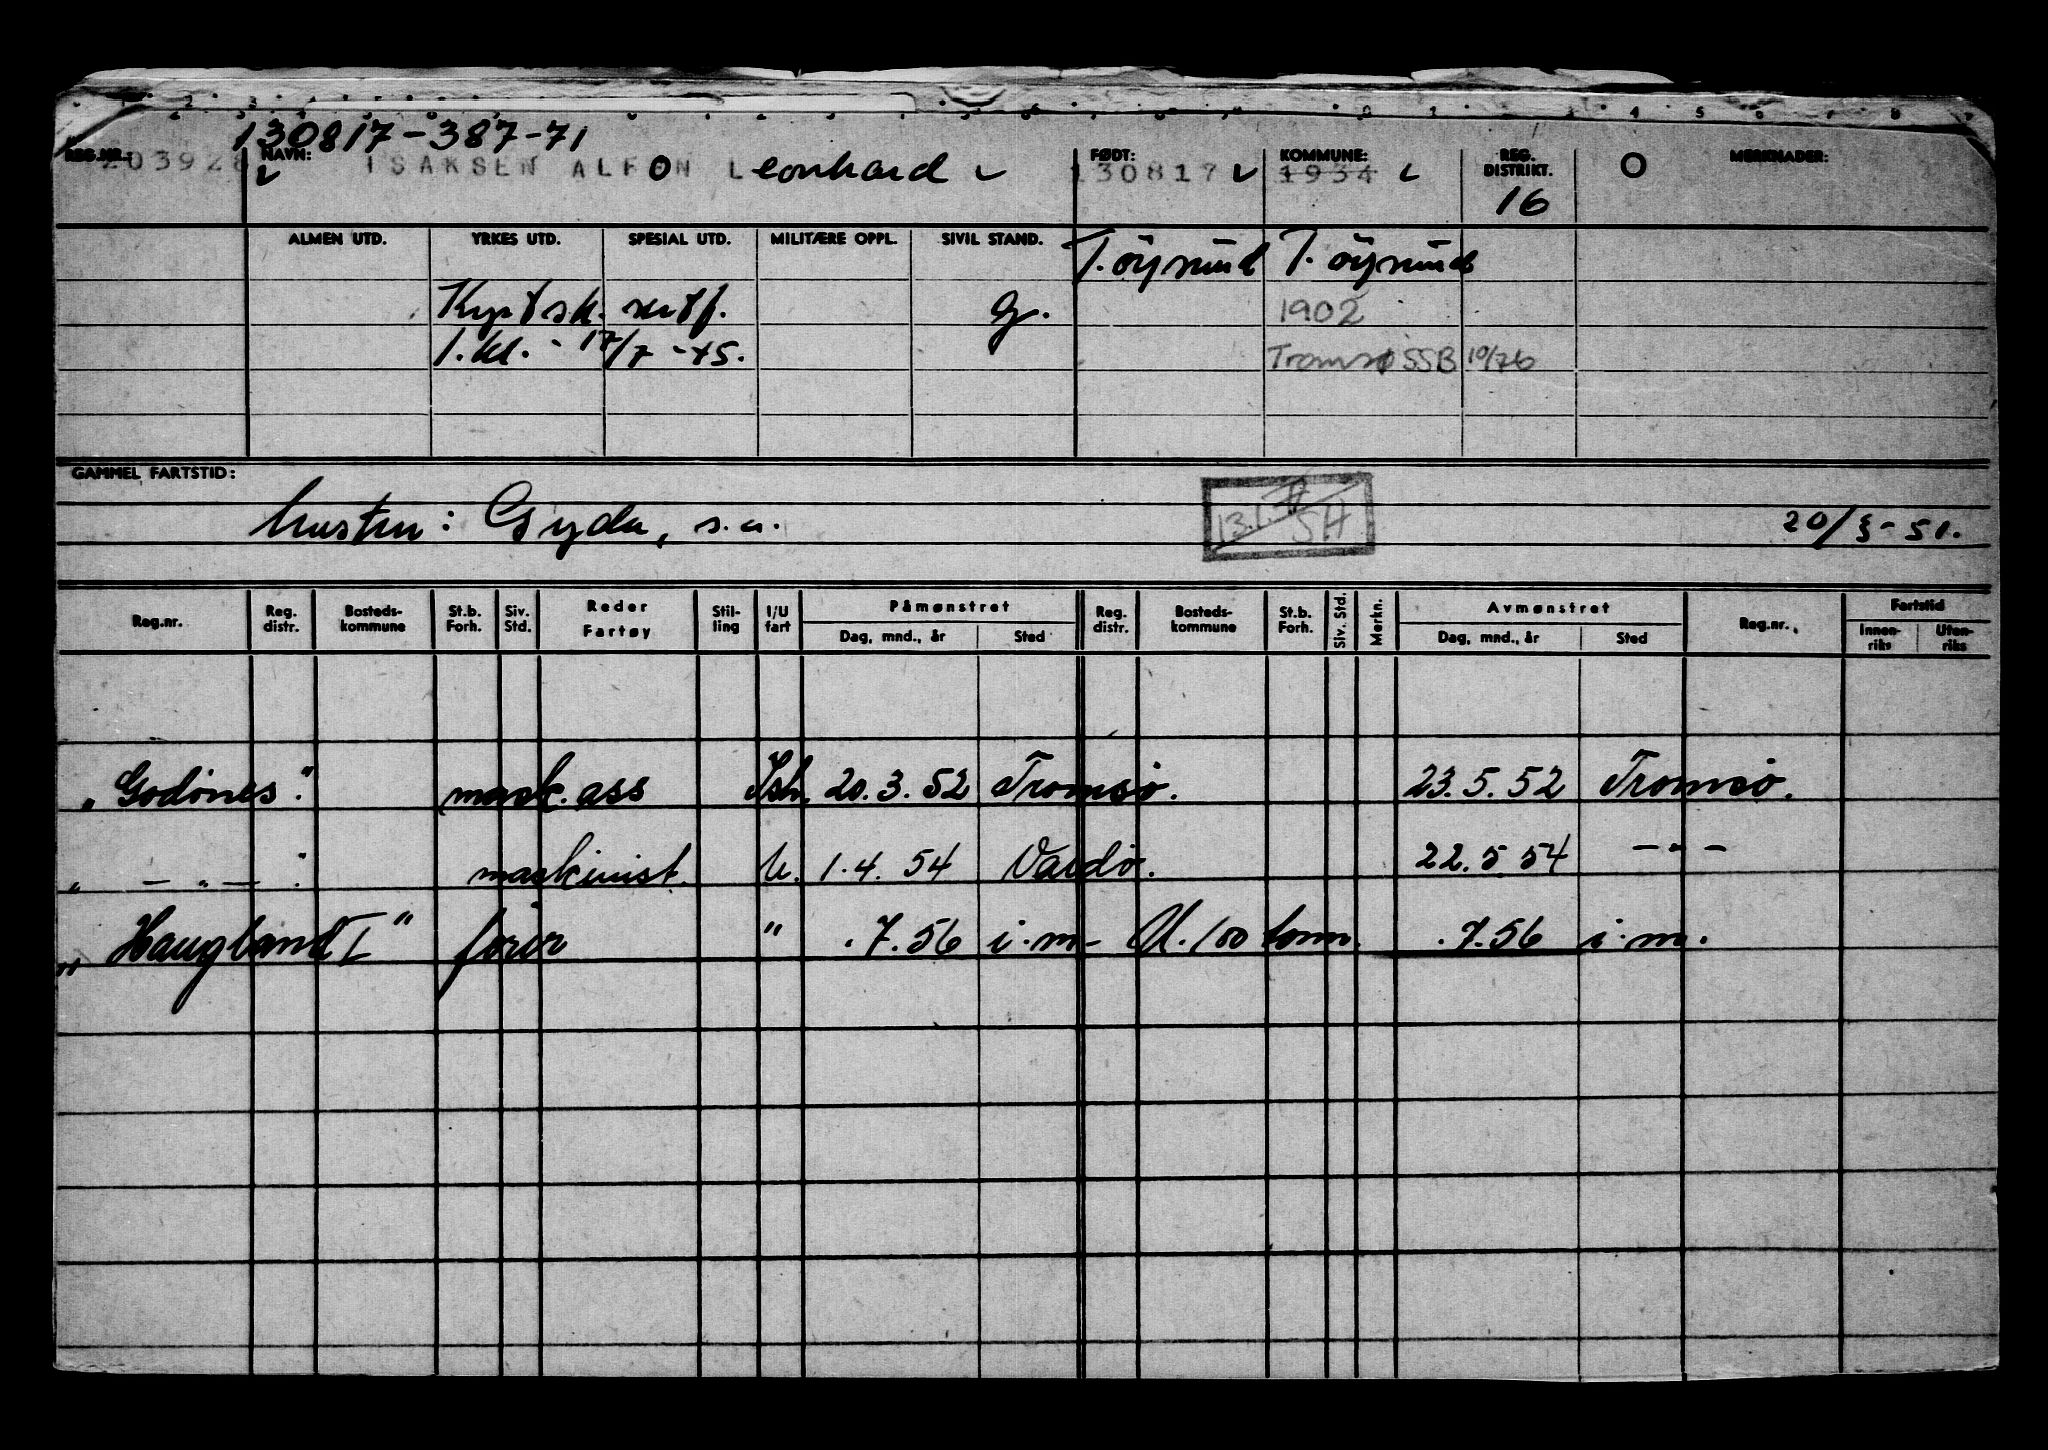 130817-387-71
REG.NR.: 203928 NAVN: ISAKSEN ALFON Leonhard FØDT: 130817 KOMMUNE: 1934 REG. DISTRIKT. 16 O MERKNADER:
ALMEN UTD. YRKES UTD. SPESIAL UTD. MILITÆRE OPPL. SIVIL STAND. T.öysund T.öysund
Kystsk. sertf. G. 1902
1.kl. - 17/7 -45. Tromsø SSB 10/76
GAMMEL FARTSTID:
hustru: Gyda, s.a. 13.1. 54 20/3-51.
Reg.nr. Reg. distr. Bosteds- kommune St.b. Forh. Siv. Std. Reder Fartøy Stil- ling I/U fart Påmønstret Dag, mnd., år Sted Reg. distr. Bosteds- kommune St.b. Forh. Siv. Std. Merkn. Avmønstret Dag, mnd., år Sted Reg.nr. Fartstid Innen- riks Uten- riks
„Godönes." mask.ass Ish. 20.3.52 Tromsö. 23.5.52 Tromsö.
„ — „ — " maskinist. U. 1.4.54 Vardö. 22.5.54 — " —
„Haugland I" förer " .7.56 i.m- U.100 tonn. .7.56 i.m.